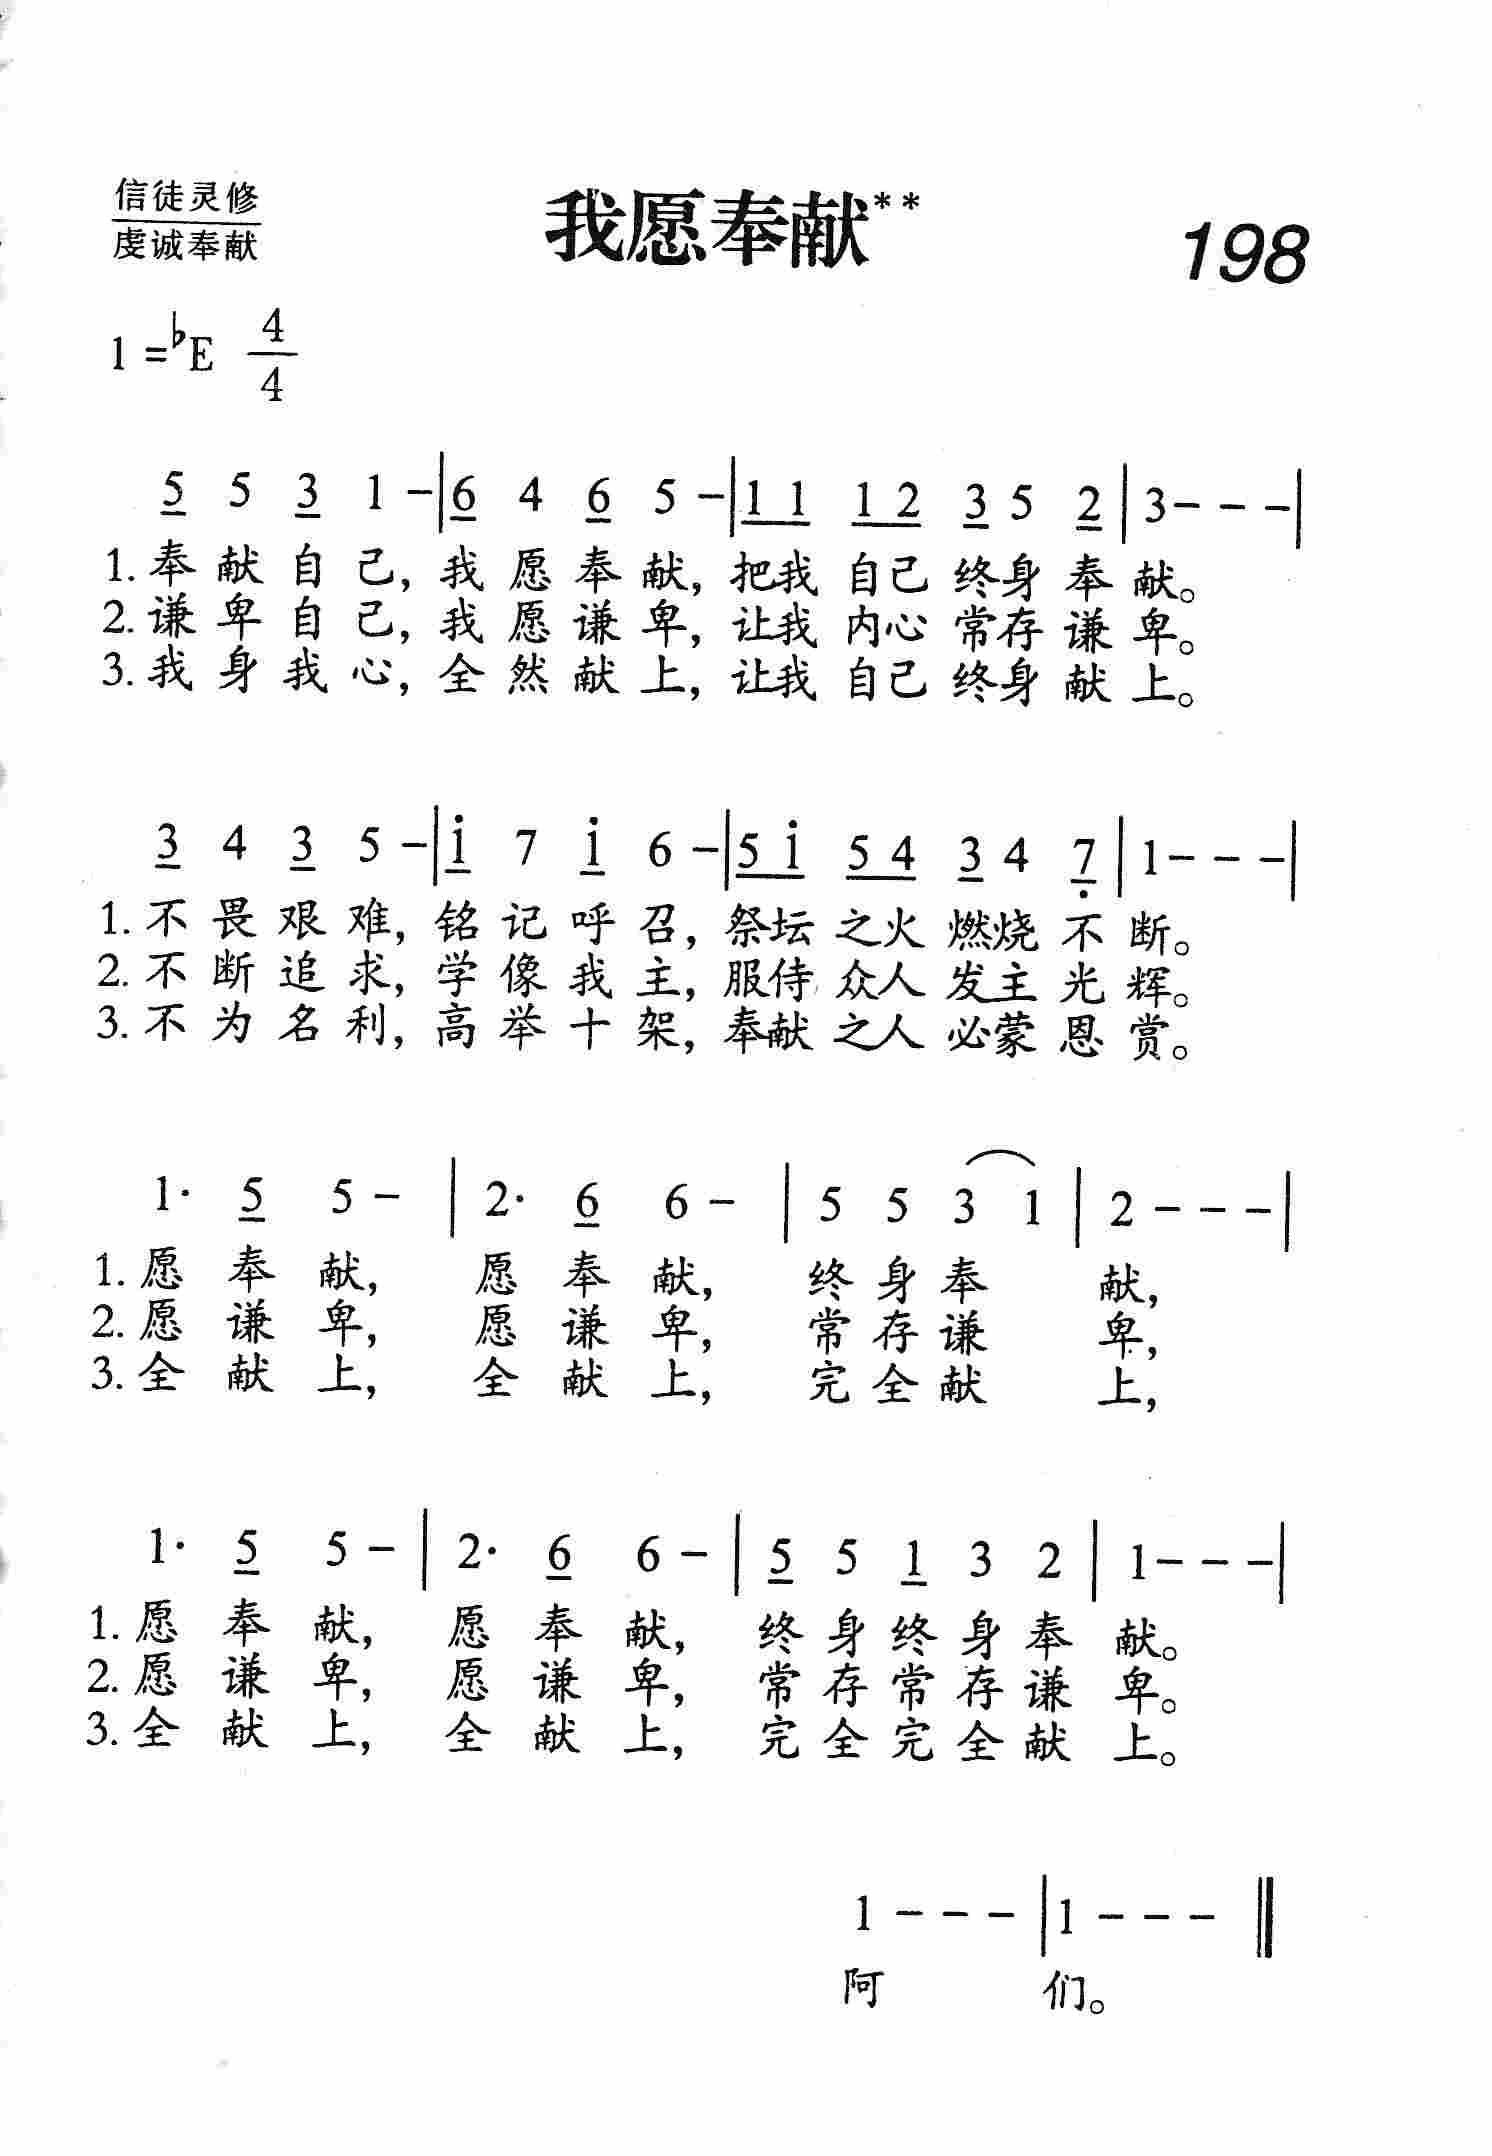 信徒灵修
虔诚奉献
我愿奉献**
198
1=♭E 4/4
5 5 3 1 -|6 4 6 5 -|1 1 1 2 3 5 2|3 - - -|
1. 奉献自己,我愿奉献,把我自己终身奉献。
2. 谦卑自己,我愿谦卑,让我内心常存谦卑。
3. 我身我心,全然献上,让我自己终身献上。
3 4 3 5 -|i 7 i 6 -|5 i 5 4 3 4 7|1 - - -|
1. 不畏艰难,铭记呼召,祭坛之火燃烧不断。
2. 不断追求,学像我主,服侍众人发主光辉。
3. 不为名利,高举十架,奉献之人必蒙恩赏。
1· 5 5 -|2· 6 6 -|5 5 3 1|2 - - -|
1. 愿奉献,愿奉献,终身奉献,
2. 愿谦卑,愿谦卑,常存谦卑,
3. 全献上,全献上,完全献上,
1· 5 5 -|2· 6 6 -|5 5 1 3 2|1 - - -|
1. 愿奉献,愿奉献,终身终身奉献。
2. 愿谦卑,愿谦卑,常存常存谦卑。
3. 全献上,全献上,完全完全献上。
1 - - -|1 - - -‖
阿们。